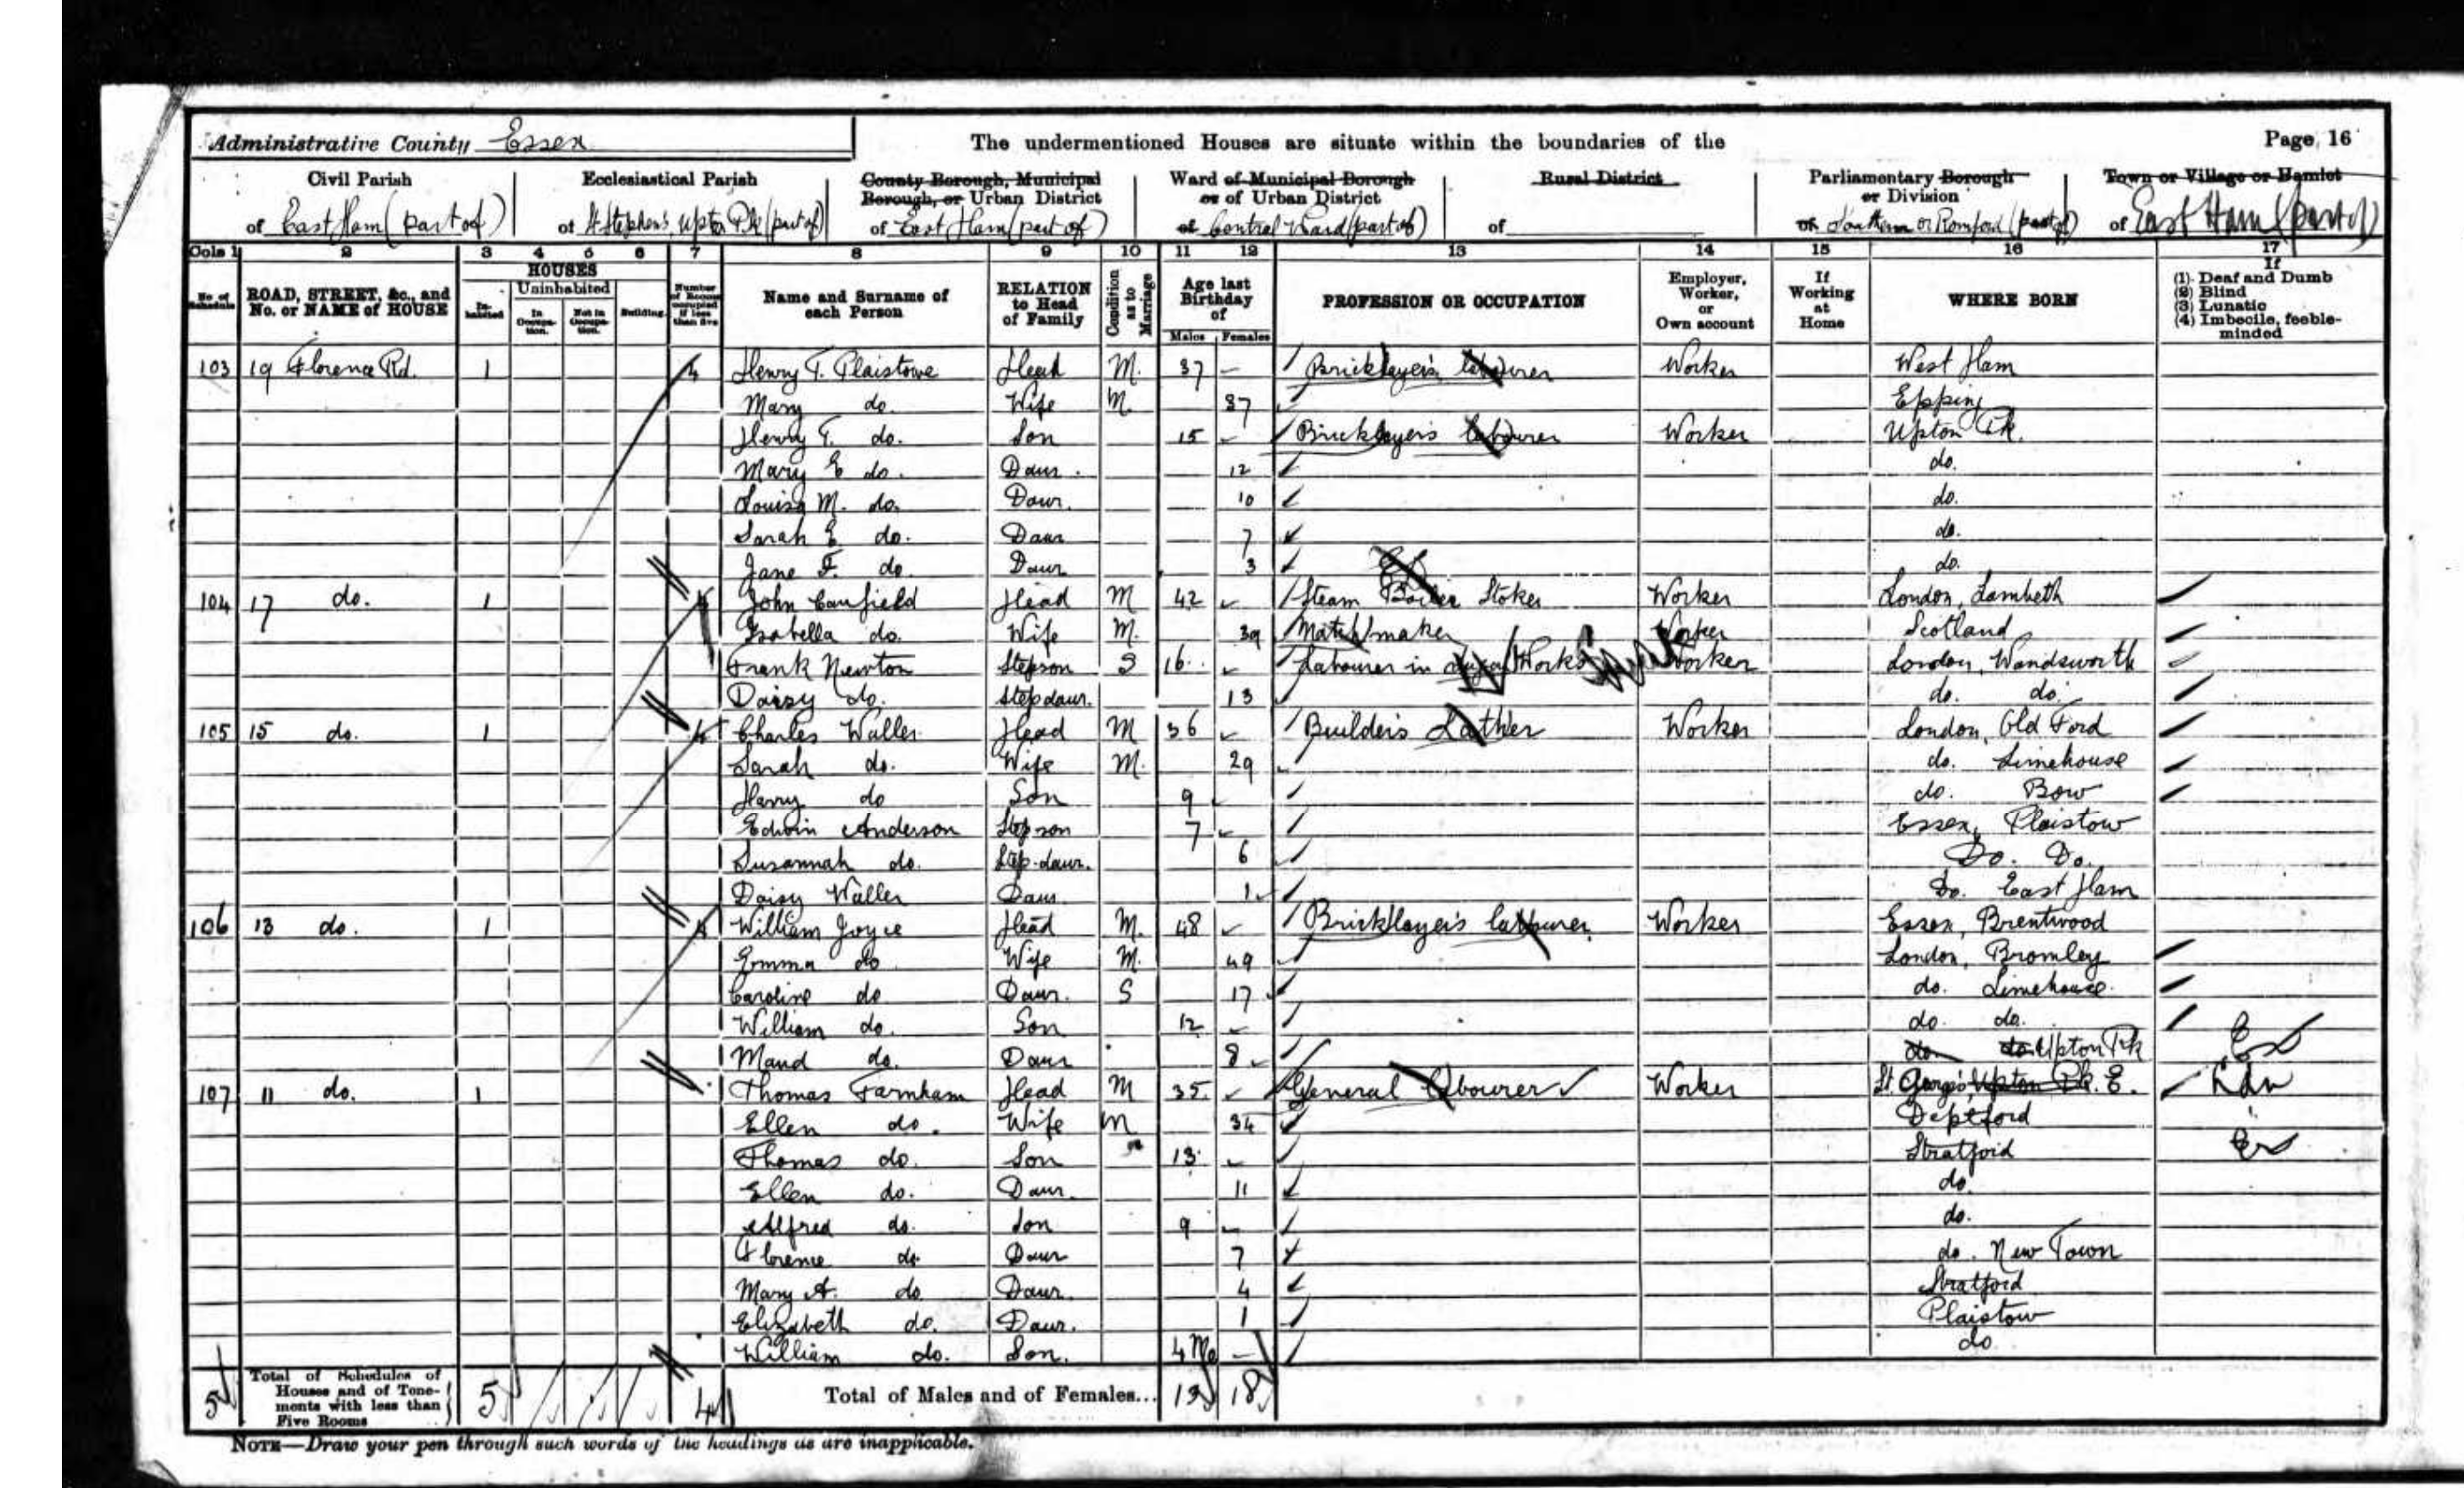 Administrative County Essex
The undermentioned Houses are situate within the boundaries of the
Page 16
Civil Parish of East Ham (part of)
Ecclesiastical Parish of St Stephen's, Upton Pk (part of)
County Borough, Municipal Borough, or Urban District of East Ham (part of)
Ward of Municipal Borough or of Urban District of Central Ward (part of)
Rural District of
Parliamentary Borough or Division of Southern or Romford (part of)
Town or Village or Hamlet of East Ham (part of)
Cols 1 2 3 4 5 6 7 8 9 10 11 12 13 14 15 16 17
No. of Schedule
ROAD, STREET, &c., and No. or NAME of HOUSE
HOUSES
Inhabited
Uninhabited
In Occupation.
Not in Occupation.
Building.
Number of Rooms occupied if less than five
Name and Surname of each Person
RELATION to Head of Family
Condition as to Marriage
Age last Birthday of
Males Females
PROFESSION OR OCCUPATION
Employer, Worker, or Own account
If Working at Home
WHERE BORN
If
(1) Deaf and Dumb
(2) Blind
(3) Lunatic
(4) Imbecile, feeble-minded
103 19 Florence Rd. 1 4 Henry T. Plaistowe Head M. 37 – Bricklayer's labourer Worker West Ham
Mary do. Wife M. 37 Epping
Henry T. do. Son 15 Bricklayer's labourer Worker Upton Pk.
Mary E do. Daur. 12 do.
Louisa M. do. Daur. 10 do.
Sarah E. do. Daur 7 do.
Jane F. do. Daur 3 do.
104 17 do. 1 4 John Canfield Head M 42 Steam Boiler Stoker Worker London, Lambeth
Isabella do. Wife M. 39 Match maker Worker Scotland
Frank Newton Stepson S 16 Labourer in Works Worker London, Wandsworth
Daisy do. Stepdaur. 13 do. do.
105 15 do. 1 4 Charles Waller Head M 36 Builder's Lather Worker London, Old Ford
Sarah do. Wife M. 29 do. Limehouse
Harry do Son 9 do. Bow
Edwin Anderson Stepson 7 Essex, Plaistow
Susannah do. Step-daur. 6 Do. Do.
Daisy Waller Daur 1 Do. East Ham
106 13 do. 1 4 William Joyce Head M. 48 Bricklayer's labourer Worker Essex, Brentwood
Emma do Wife M. 49 London, Bromley
Caroline do Daur. S 17 do. Limehouse
William do. Son 12 do. do.
Maud do. Daur 8 do. do. Upton Pk
107 11 do. 1 Thomas Farnham Head M 35 General labourer Worker St. George's, Upton Pk. E. Ldn
Ellen do. Wife M 34 Deptford
Thomas do. Son 13 Stratford
Ellen do. Daur. 11 do.
Alfred do. Son 9 do.
Florence do. Daur 7 do. New Town
Mary A. do Daur. 4 Stratford
Elizabeth do. Daur. 1 Plaistow
William do. Son. 4 Mo – do
5 Total of Schedules of Houses and of Tenements with less than Five Rooms 5 4 Total of Males and of Females... 13 18
NOTE—Draw your pen through such words of the headings as are inapplicable.